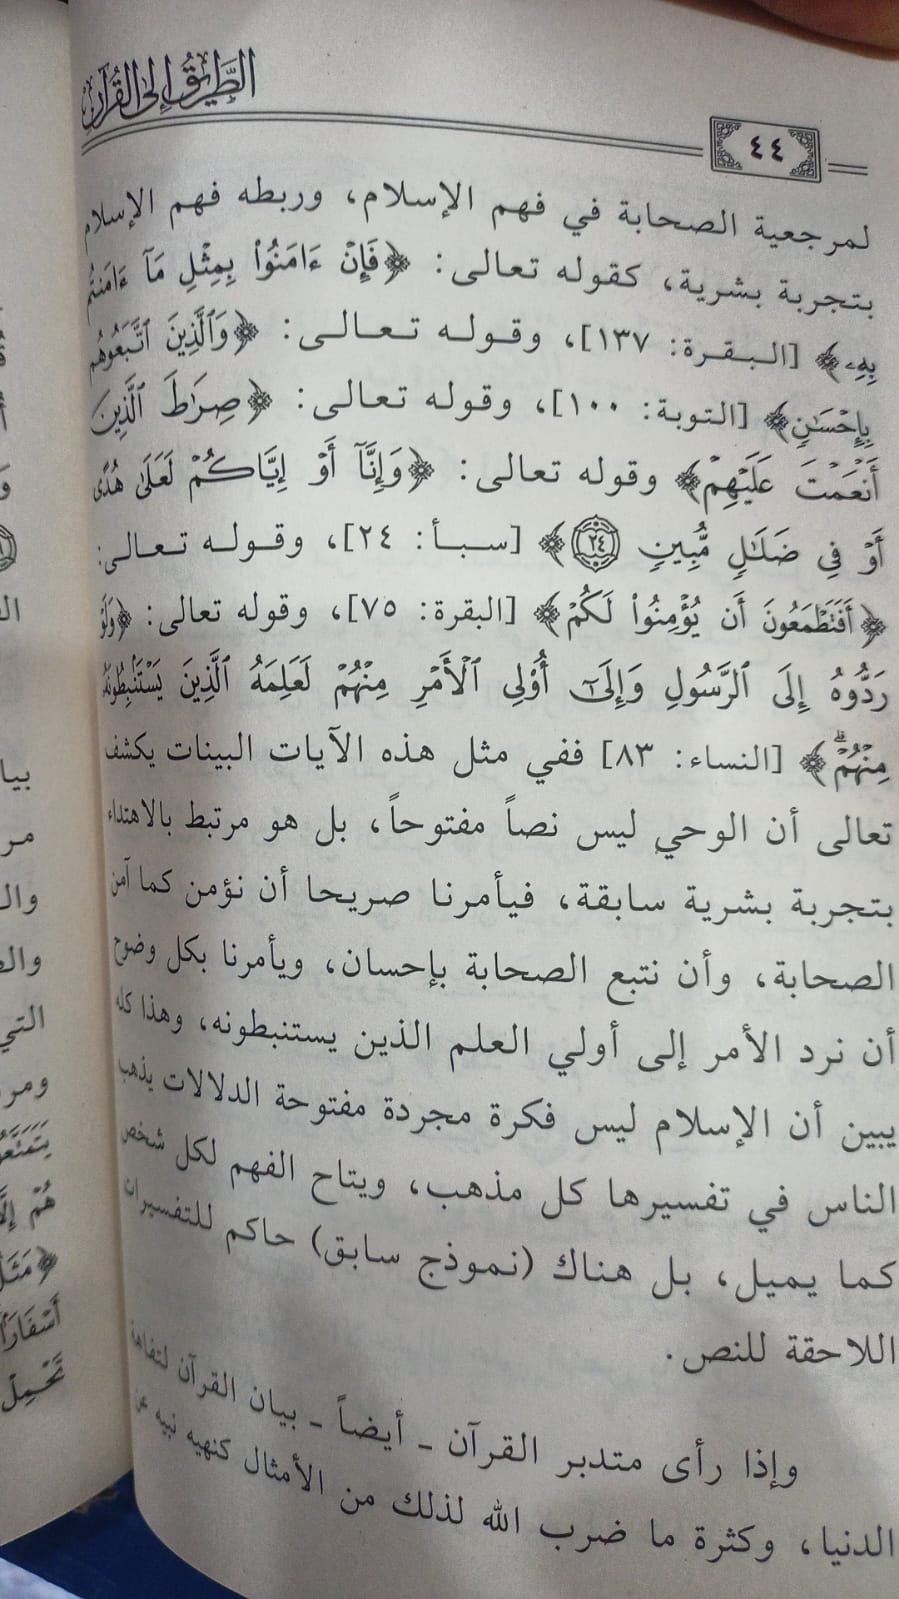 الطريق إلى القرآن
٤٤
لمرجعية الصحابة في فهم الإسلام، وربطه فهم الإسلام
بتجربة بشرية، كقوله تعالى: ﴿فَإِنْ ءَامَنُوا۟ بِمِثْلِ مَآ ءَامَنتُم
بِهِۦ﴾ [البقرة: ١٣٧]، وقوله تعالى: ﴿وَٱلَّذِينَ ٱتَّبَعُوهُم
بِإِحْسَٰنٍ﴾ [التوبة: ١٠٠]، وقوله تعالى: ﴿صِرَٰطَ ٱلَّذِينَ
أَنْعَمْتَ عَلَيْهِمْ﴾ وقوله تعالى: ﴿وَإِنَّآ أَوْ إِيَّاكُمْ لَعَلَىٰ هُدًى
أَوْ فِي ضَلَٰلٍ مُّبِينٍ ٢٤﴾ [سبأ: ٢٤]، وقوله تعالى:
﴿أَفَتَطْمَعُونَ أَن يُؤْمِنُوا۟ لَكُمْ﴾ [البقرة: ٧٥]، وقوله تعالى: ﴿وَلَوْ
رَدُّوهُ إِلَى ٱلرَّسُولِ وَإِلَىٰٓ أُو۟لِي ٱلْأَمْرِ مِنْهُمْ لَعَلِمَهُ ٱلَّذِينَ يَسْتَنۢبِطُونَهُۥ
مِنْهُمْ ۗ﴾ [النساء: ٨٣] ففي مثل هذه الآيات البينات يكشف
تعالى أن الوحي ليس نصاً مفتوحاً، بل هو مرتبط بالاهتداء
بتجربة بشرية سابقة، فيأمرنا صريحا أن نؤمن كما آمن
الصحابة، وأن نتبع الصحابة بإحسان، ويأمرنا بكل وضوح
أن نرد الأمر إلى أولي العلم الذين يستنبطونه، وهذا كله
يبين أن الإسلام ليس فكرة مجردة مفتوحة الدلالات يذهب
الناس في تفسيرها كل مذهب، ويتاح الفهم لكل شخص
كما يميل، بل هناك (نموذج سابق) حاكم للتفسيرات
اللاحقة للنص.
وإذا رأى متدبر القرآن ـ أيضاً ـ بيان القرآن لتفاهة
الدنيا، وكثرة ما ضرب الله لذلك من الأمثال كنهيه نبيه عن